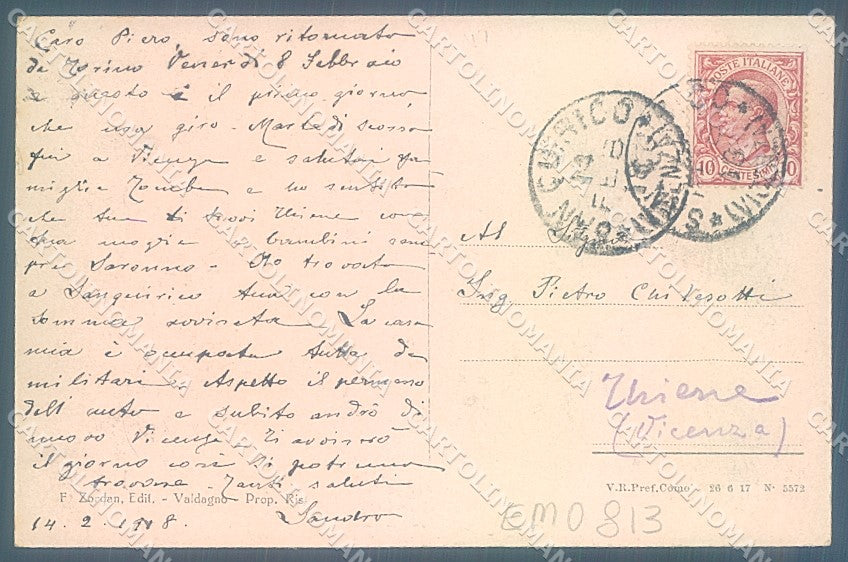 Caro Piero, sono ritornato
da Torino Venerdì 8 Febbraio
e questo è il primo giorno
che esco giro. Martedì scorso
fui a Vicenza e salutai fa
miglia e ho sentito
che sei di Thiene con
tua moglie bambini sem
pre Saronno - Ho trovato
a Sanquirico tua con la
somma La casa
mia è occupata tutta da
militari. Aspetto il permesso
dell' auto e subito andrò di
nuovo Vicenza. Ti avviserò
il giorno così ti potremo
trovare. Tanti saluti
Sandro
14. 2. 1918.
F. Zordan, Edit. - Valdagno - Prop. Ris.
POSTE ITALIANE
10 CENTESIMI
Al
Sig
Ing Pietro Chilesotti
Thiene
(Vicenza)
V.R.Pref.Como 26 6 17 N· 5572
CM0813
CARTOLINOMANIA